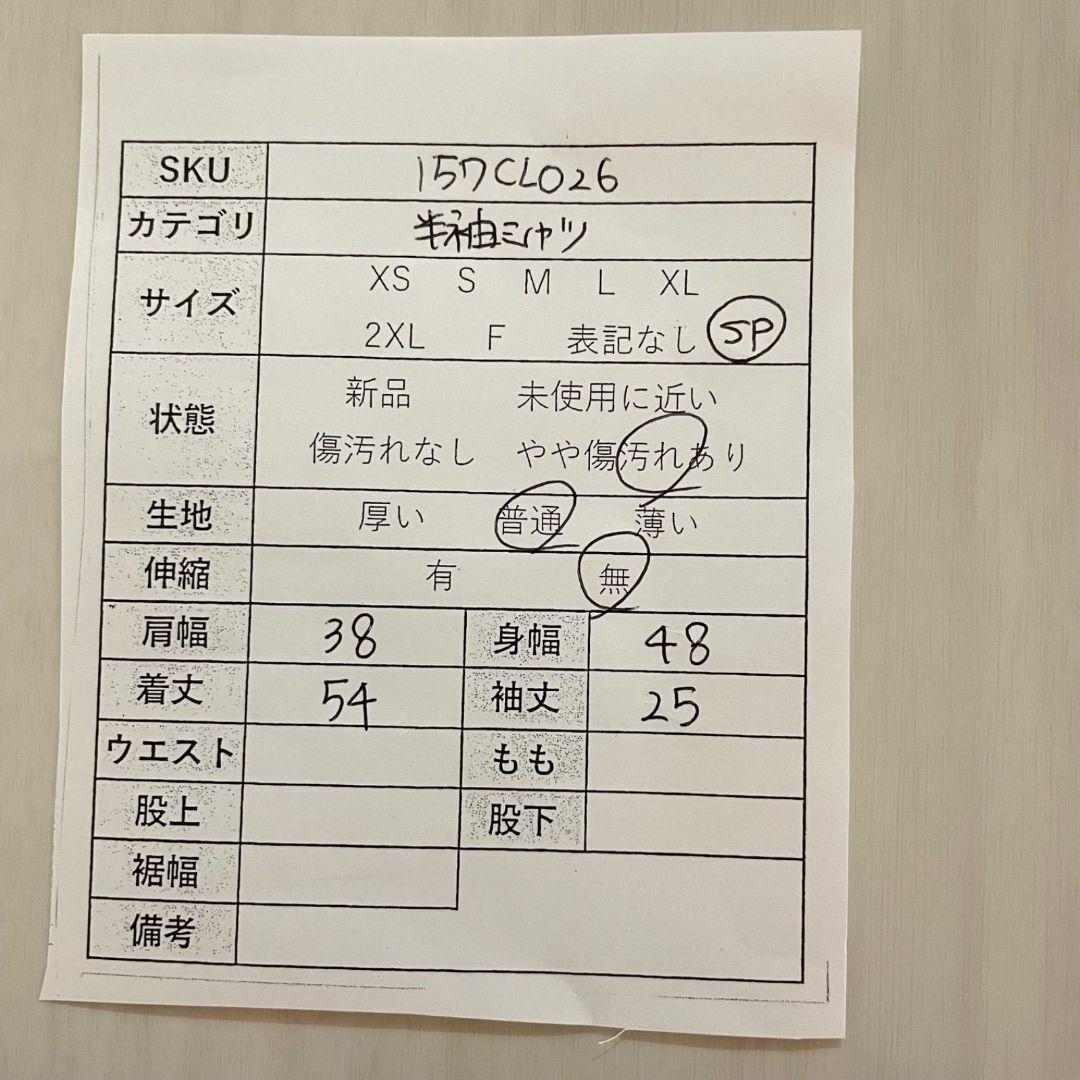 SKU 157CL026
カテゴリ 半袖シャツ
サイズ XS S M L XL
2XL F 表記なし SP
状態 新品 未使用に近い
傷汚れなし やや傷汚れあり
生地 厚い 普通 薄い
伸縮 有 無
肩幅 38 身幅 48
着丈 54 袖丈 25
ウエスト もも
股上 股下
裾幅
備考